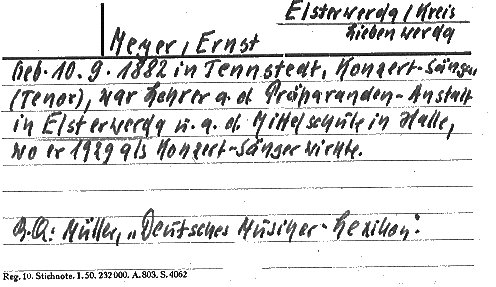 Elsterwerda / Kreis
Liebenwerda
Meyer, Ernst
Geb. 10. 9. 1882 in Tennstedt, Konzert-Sänger
(Tenor), war Lehrer a. d. Präparanden-Anstalt
in Elsterwerda u. a. d. Mittelschule in Halle,
wo er 1929 als Konzert-Sänger wirkte.
B.Q.: Müller, „Deutsches Musiker-Lexikon".
Reg. 10. Stichnote. I. 50. 232000. A. 803. S. 4062